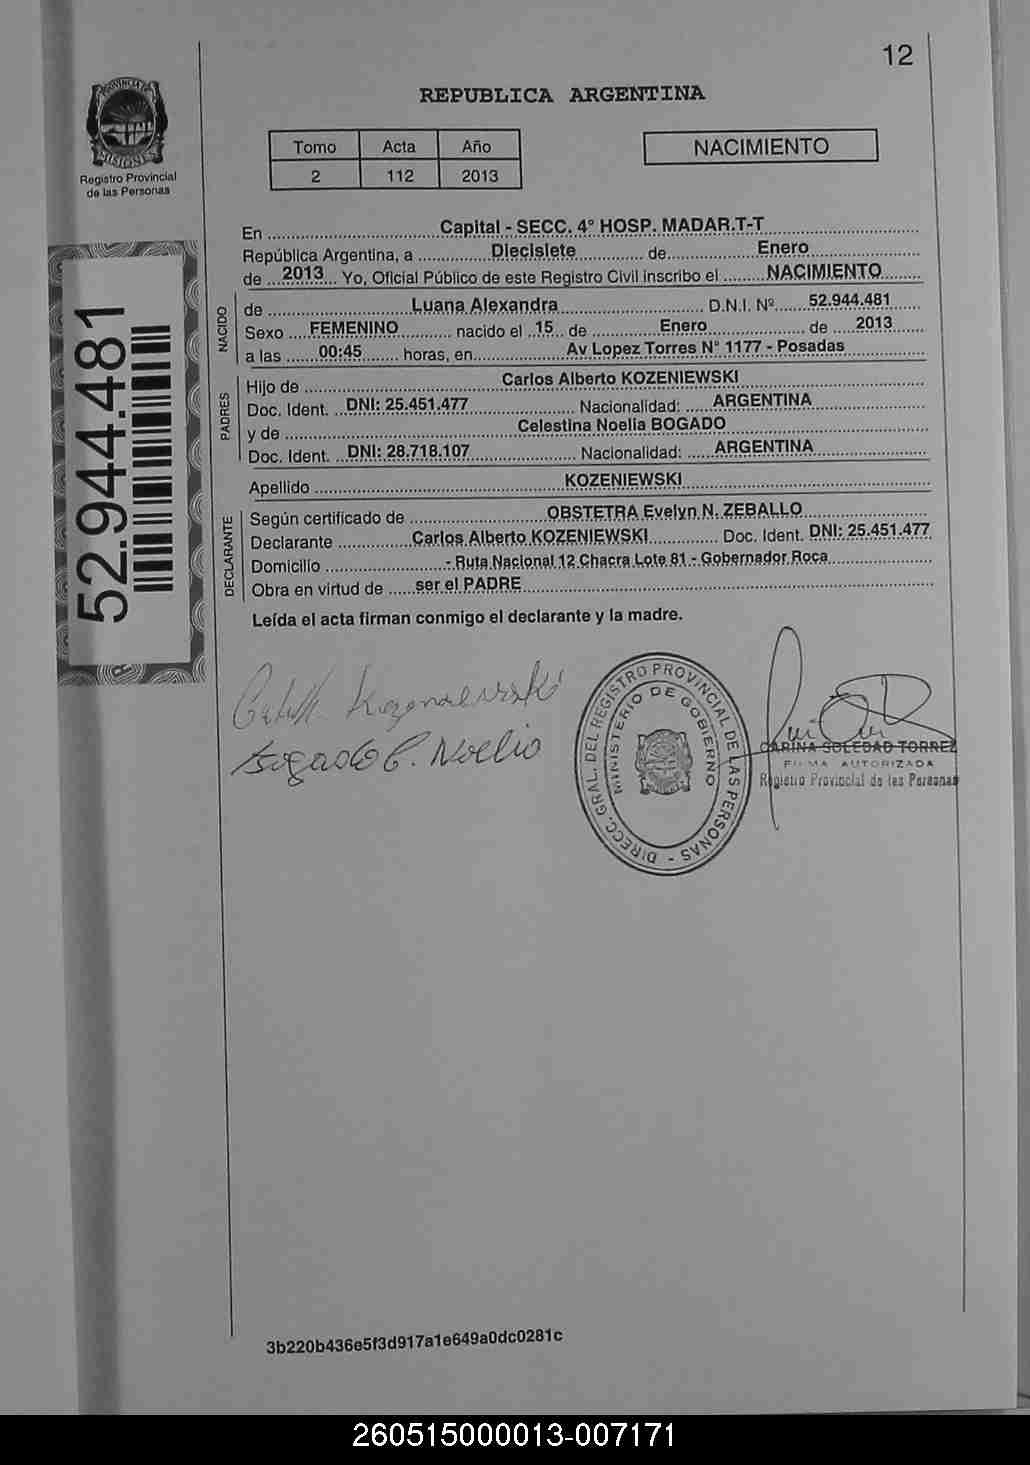 12
REPUBLICA ARGENTINA
PROVINCIA DE
MISIONES
Registro Provincial
de las Personas
Tomo Acta Año
2 112 2013
NACIMIENTO
52.944.481
En Capital - SECC. 4° HOSP. MADAR.T-T
República Argentina, a Diecisiete de Enero
de 2013 Yo, Oficial Público de este Registro Civil inscribo el NACIMIENTO
NACIDO
de Luana Alexandra D.N.I. Nº 52.944.481
Sexo FEMENINO nacido el 15 de Enero de 2013
a las 00:45 horas, en Av Lopez Torres N° 1177 - Posadas
PADRES
Hijo de Carlos Alberto KOZENIEWSKI
Doc. Ident. DNI: 25.451.477 Nacionalidad: ARGENTINA
y de Celestina Noelia BOGADO
Doc. Ident. DNI: 28.718.107 Nacionalidad: ARGENTINA
Apellido KOZENIEWSKI
DECLARANTE
Según certificado de OBSTETRA Evelyn N. ZEBALLO
Declarante Carlos Alberto KOZENIEWSKI Doc. Ident. DNI: 25.451.477
Domicilio - Ruta Nacional 12 Chacra Lote 81 - Gobernador Roca
Obra en virtud de ser el PADRE
Leída el acta firman conmigo el declarante y la madre.
Bogado C. Noelia
DIRECC. GRAL. DEL REGISTRO PROVINCIAL DE LAS PERSONAS -
MINISTERIO DE GOBIERNO
CARINA SOLEDAD TORREZ
FIRMA AUTORIZADA
Registro Provincial de las Personas
3b220b436e5f3d917a1e649a0dc0281c
260515000013-007171